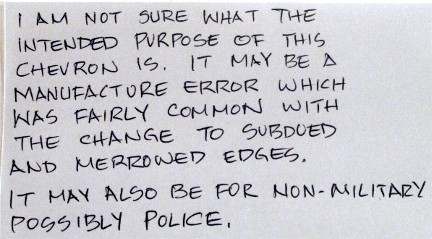 I AM NOT SURE WHAT THE
INTENDED PURPOSE OF THIS
CHEVRON IS. IT MAY BE A
MANUFACTURE ERROR WHICH
WAS FAIRLY COMMON WITH
THE CHANGE TO SUBDUED
AND MERROWED EDGES.
IT MAY ALSO BE FOR NON-MILITARY
POSSIBLY POLICE.